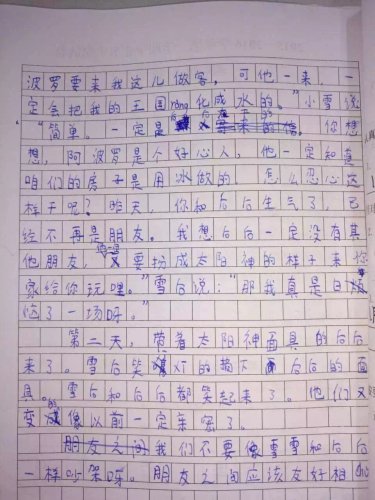 波罗要来我这儿做客，可他一来，一
定会把我的王国róng化成水的。”小雪说
：“简单。一定是又 的。你想
想，阿波罗是个好心人，他一定知道
咱们的房子是用冰做的，怎么忍心这
样子呢？昨天，你和后后生气了，已
经不再是朋友。我想后后一定没有其
他朋友，又要扮成太阳神的样子来你
家给你玩哩。”雪后说：“那我真是白烦
恼了一场呀。”
第二天，带着太阳神面具的后后
来了。雪后笑 的摘下后后的面
具。雪后和后后都笑起来了。他们又
变成像以前一定亲密了。
朋友之间我们不要像雪雪和后后
一样吵架呀。朋友之间应该友好相